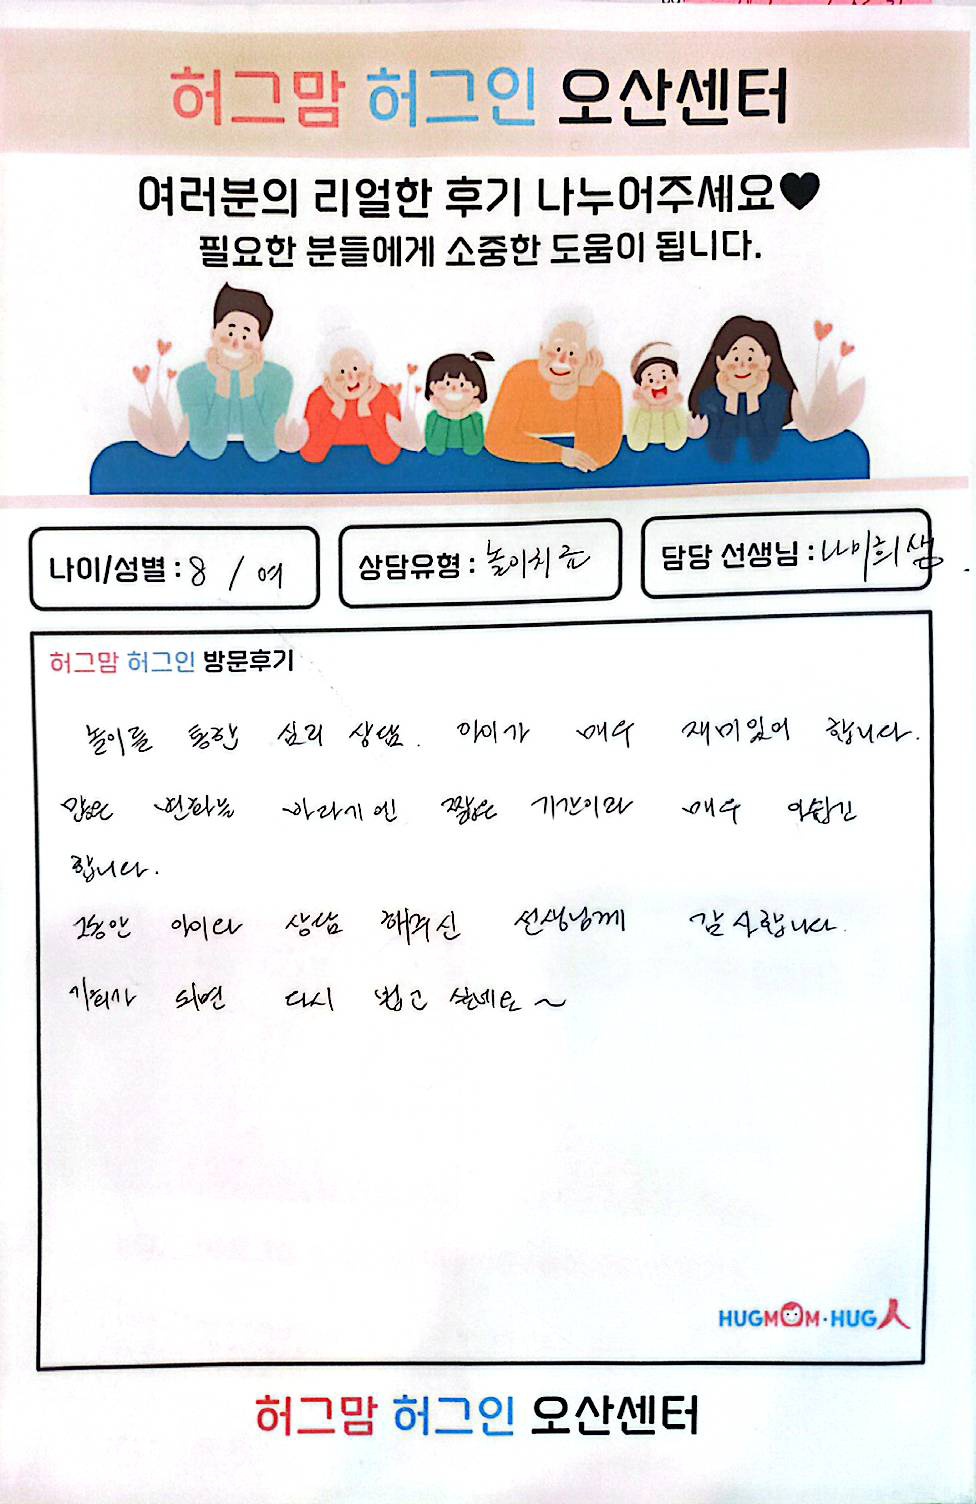 허그맘 허그인 오산센터
여러분의 리얼한 후기 나누어주세요♥
필요한 분들에게 소중한 도움이 됩니다.
나이/성별 : 8 / 여
상담유형 : 놀이치료
담당 선생님 : 나이희 쌤.
허그맘 허그인 방문후기
놀이를 통한 심리 상담. 아이가 매우 재미있어 합니다.
많은 변화를 바라기엔 짧은 기간이라 매우 아쉽긴
합니다.
그동안 아이와 상담 해주신 선생님께 감사합니다.
기회가 되면 다시 뵙고 싶네요 ~
HUGMOM·HUG人
허그맘 허그인 오산센터